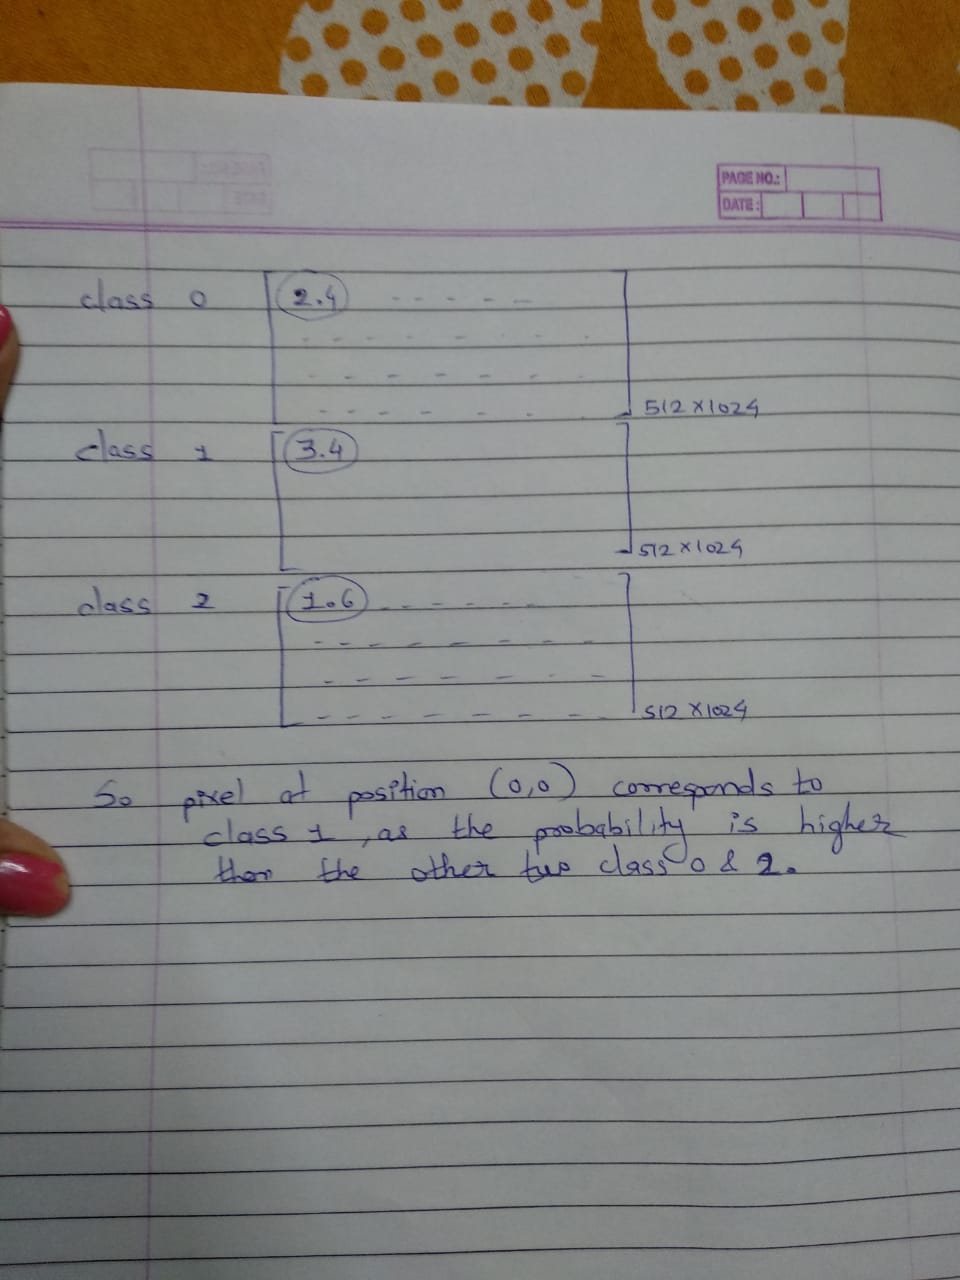 PAGE NO.:
DATE:
class 0 2.4
512 X 1024
class 1 3.4
512 X 1024
class 2 1.6
512 X 1024
So pixel at position (0,0) corresponds to
class 1, as the probability is higher
than the other two class 0 & 2.